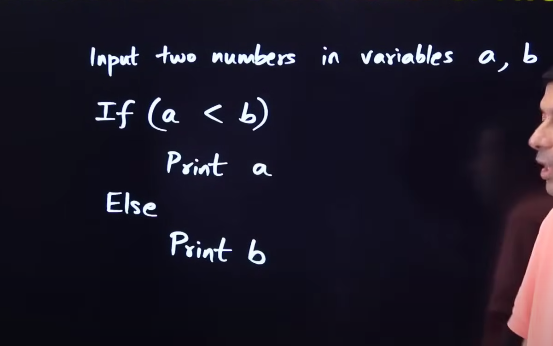 Input two numbers in variables a, b
If (a < b)
Print a
Else
Print b